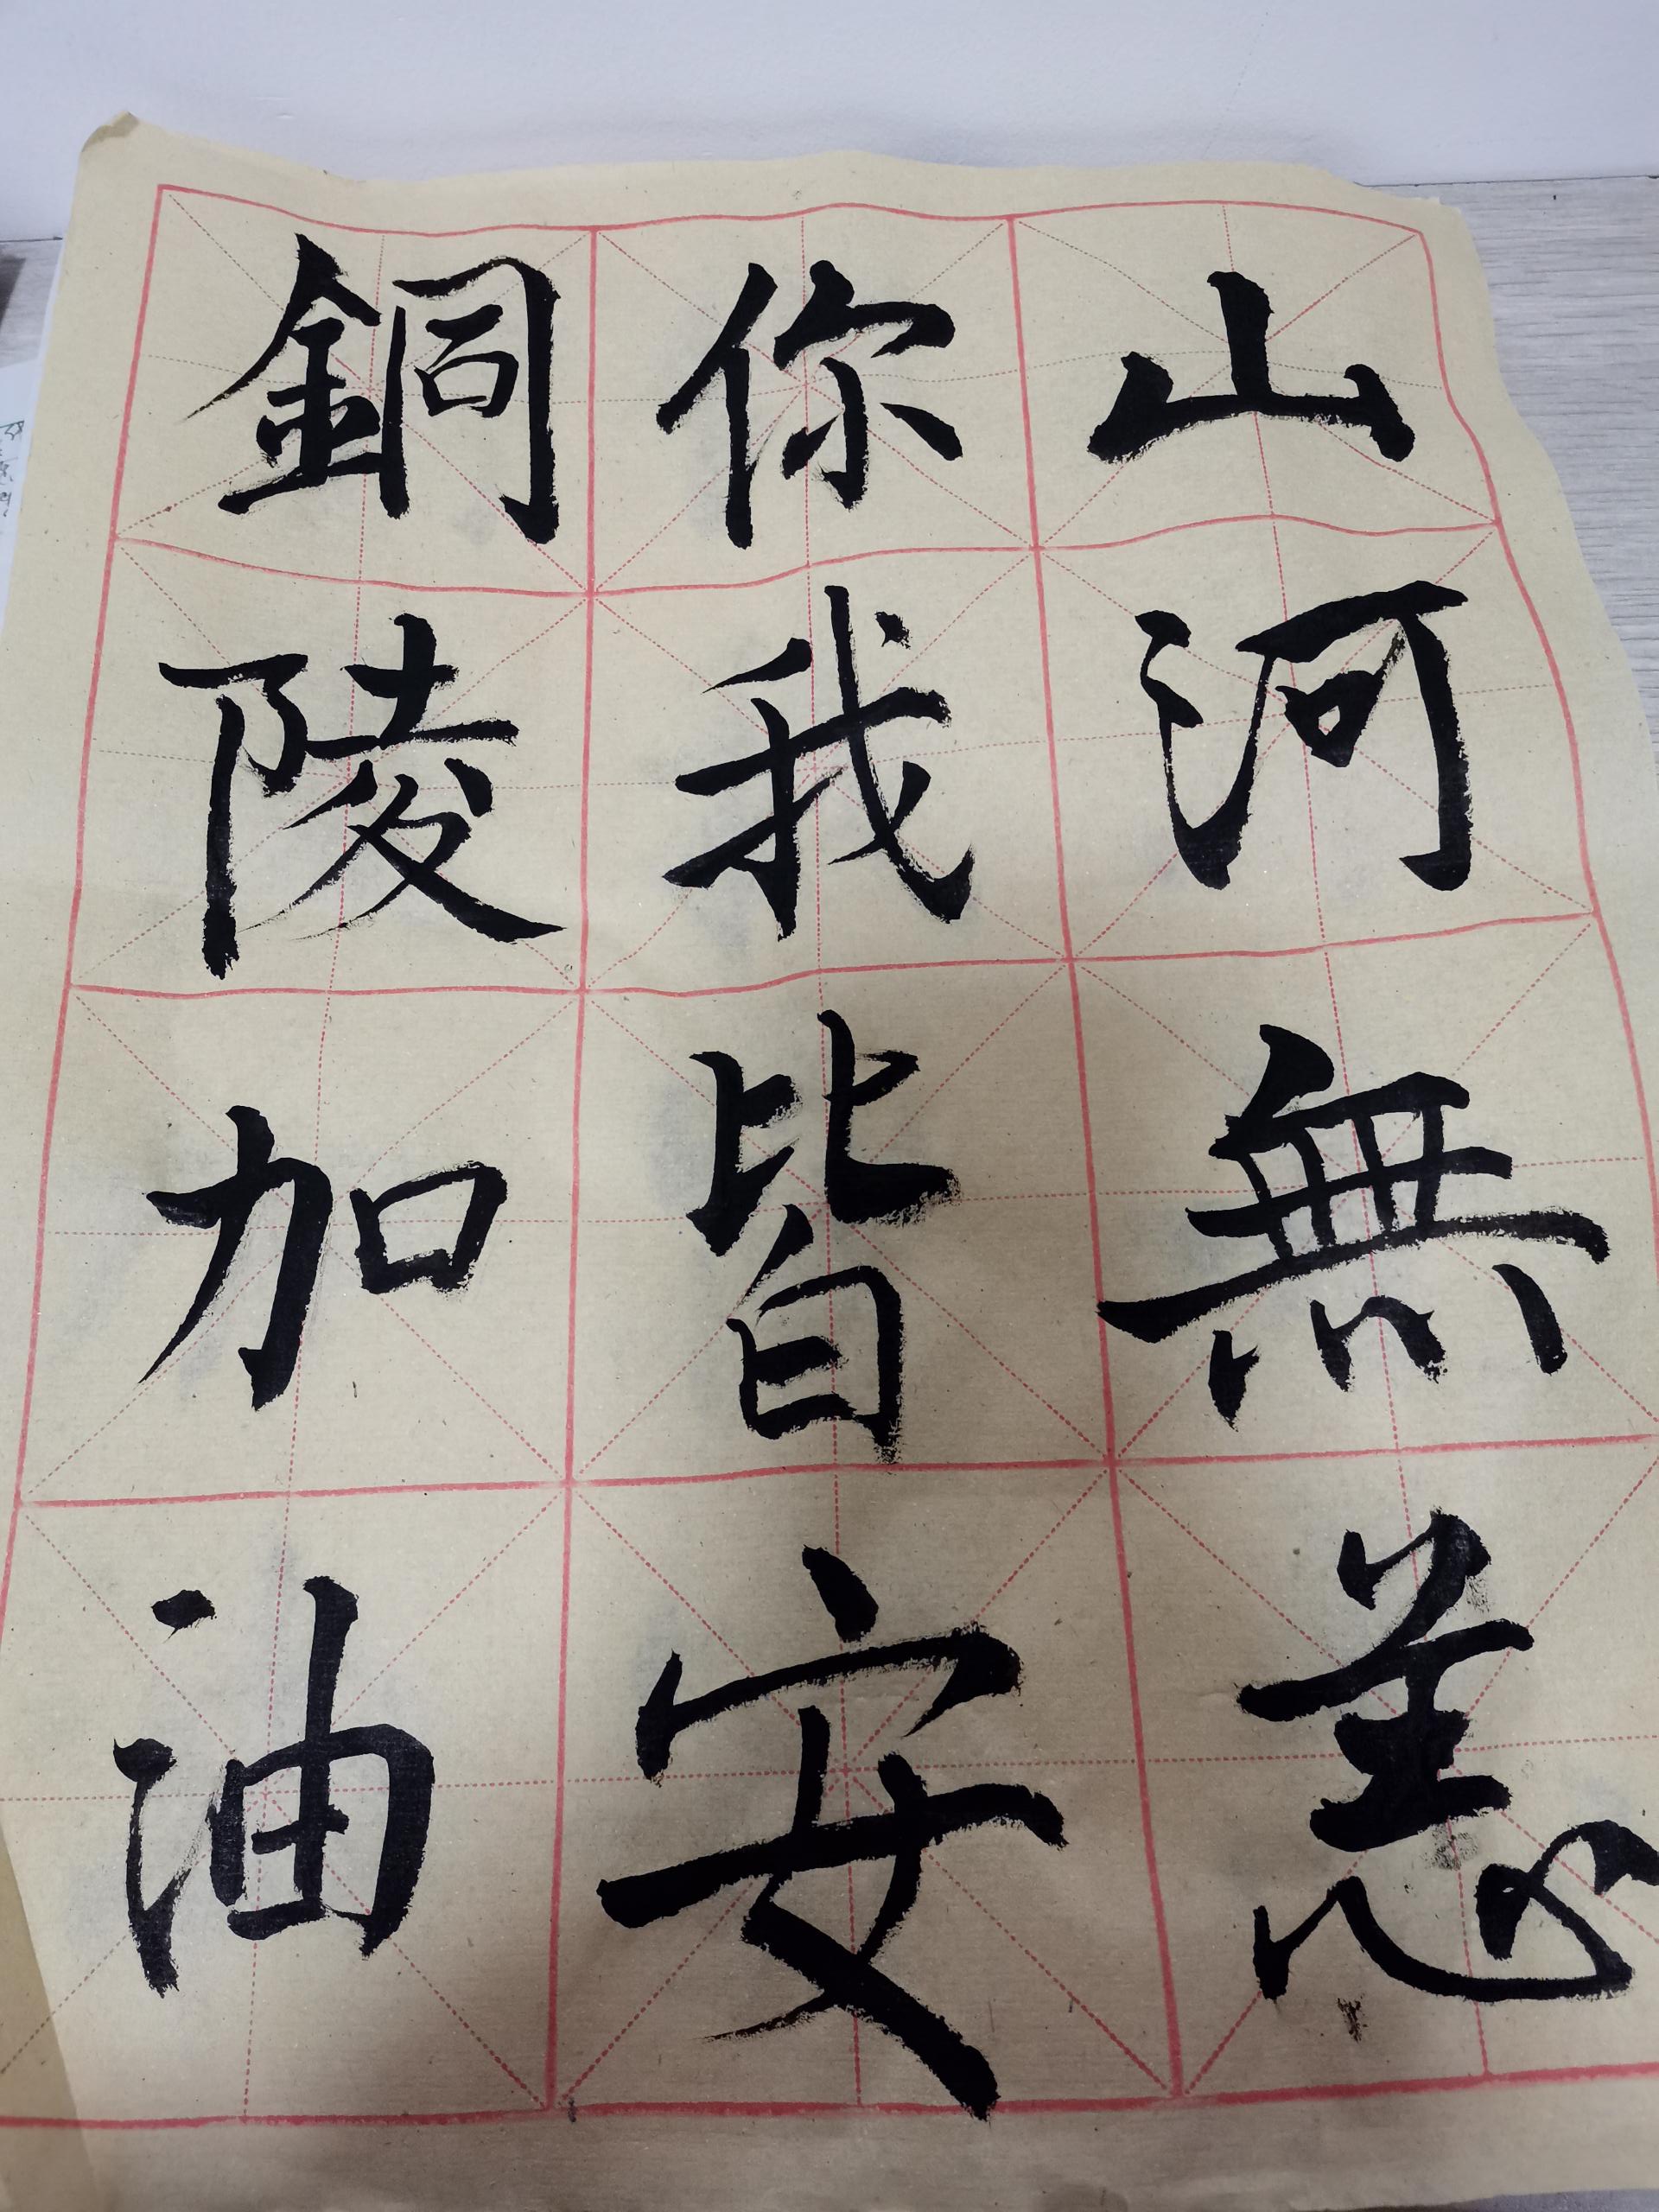 山河無恙
你我皆安
銅陵加油